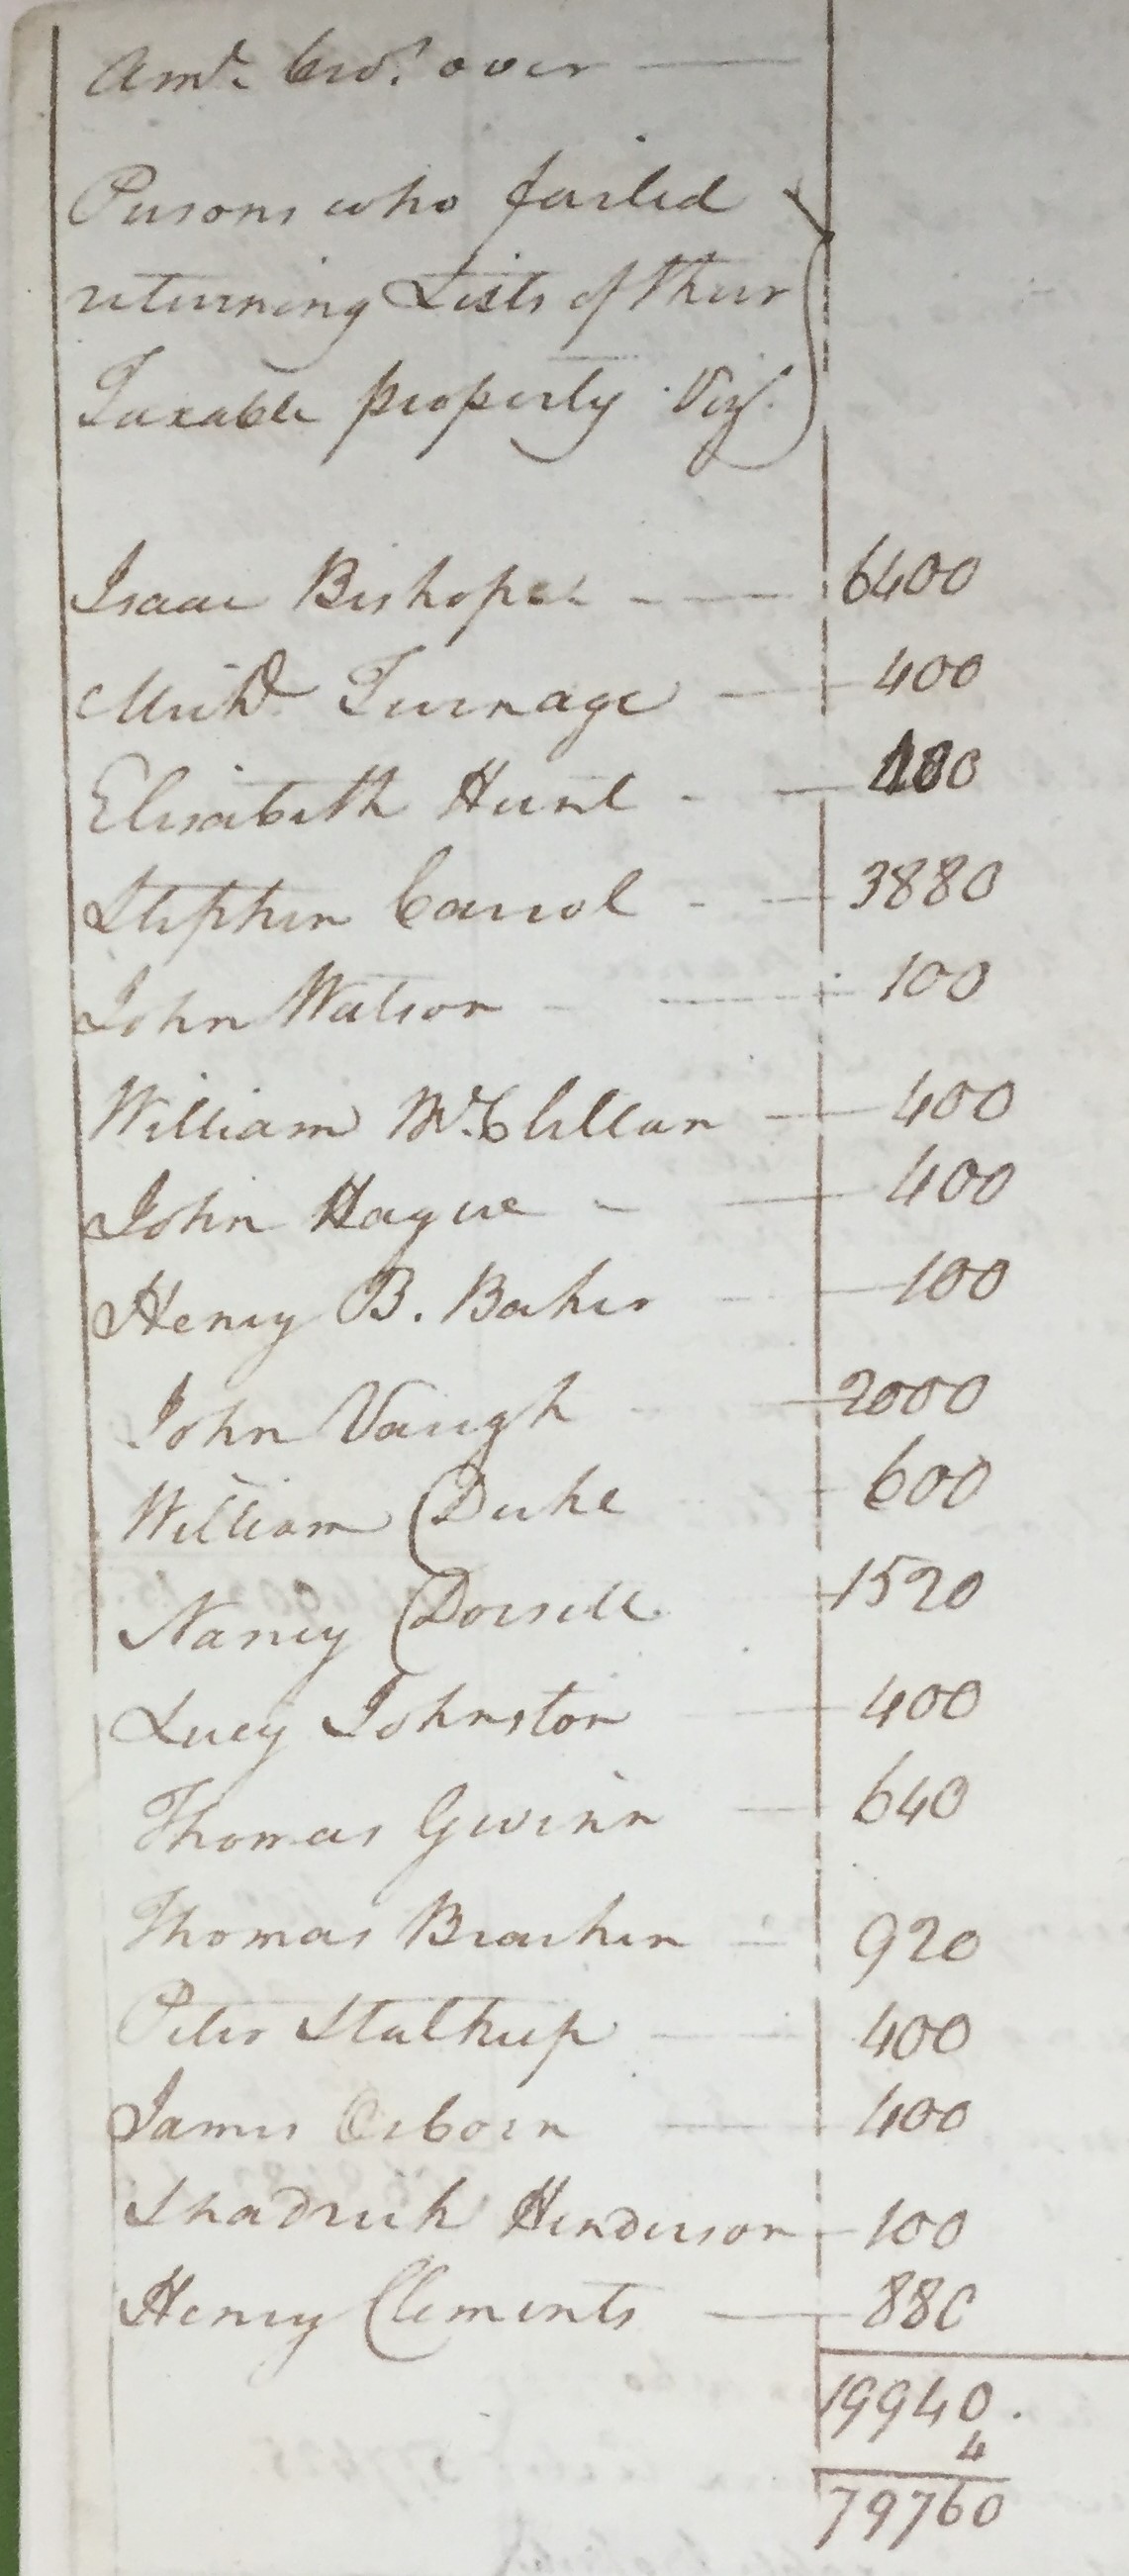 Amt. Brot. over
Persons who failed
returning Lists of their
Taxable property Viz.
Isaac Bishop 6400
Michl Turnage 400
Elisabeth Hunt 400
Stephen Carrol 3880
John Watson 100
William McClellan 400
John Hague 400
Henry B. Baker 100
John Vaugh 2000
William Duke 600
Nancy Dorsett 1520
Lucy Johnston 400
Thomas Gwinn 640
Thomas Brashen 920
Peter Stalthup 400
James Osborn 400
Shadrick Henderson 100
Henry Clements 880
19940.
4
79760